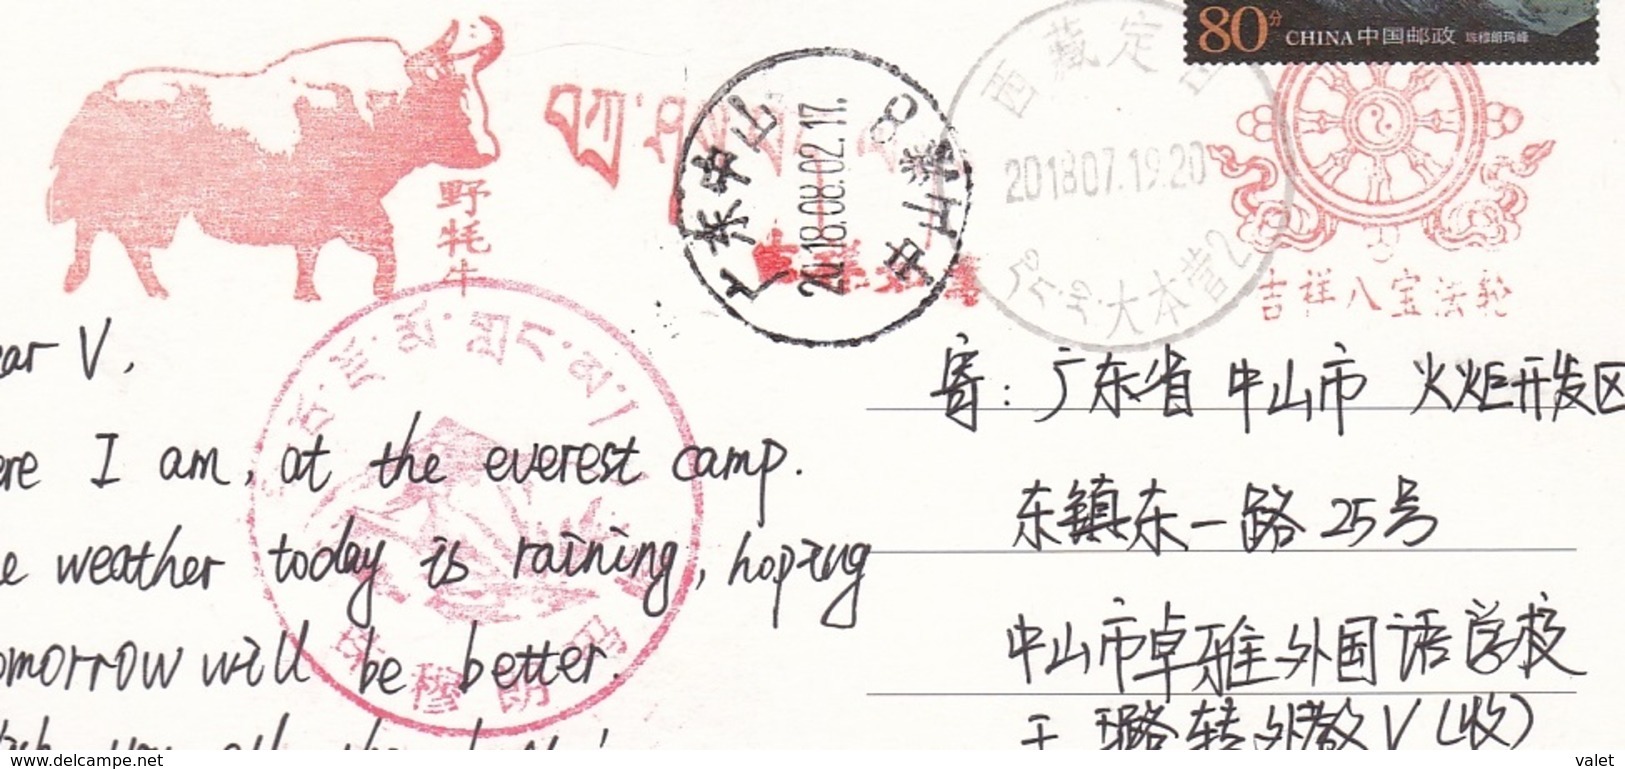 80分 CHINA 中国邮政 珠穆朗玛峰
野牦牛
广东中山
2018.08.02.17.
中山
西藏定日
2018 07.19.20
大本营
吉祥八宝法轮
ear V,
ere I am, at the everest camp.
e weather today is raining, hoping
omorrow will be better.
you all the
ཇོ་མོ་གླང་མ།
珠穆朗玛
寄: 广东省 中山市 火炬开发区
东镇东一路 25号
中山市卓雅外国语学校
王 璐转外教 V (收)
www.delcampe.net
valet